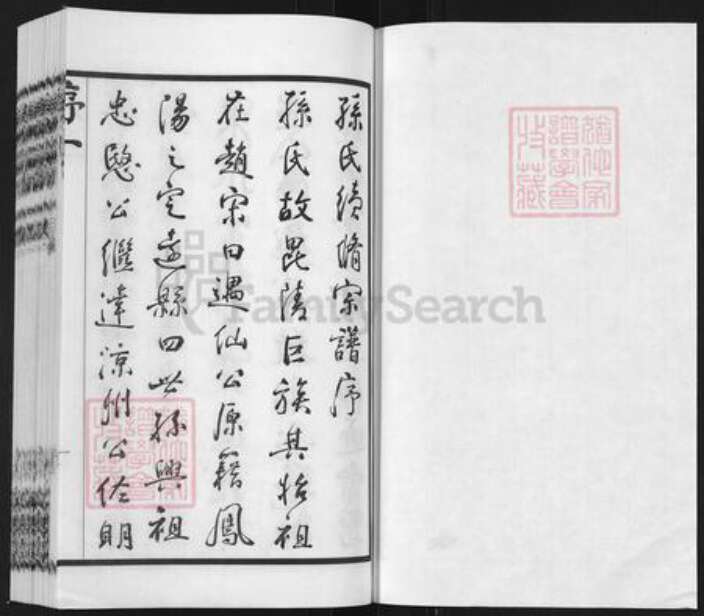 孫氏續脩宗譜序
孫氏故毘陵巨族其始祖
在趙宋曰遇仙公原籍鳳
陽之定遠縣四世孫興祖
忠愍公繼達涼州公佐明
序
一
FamilySearch